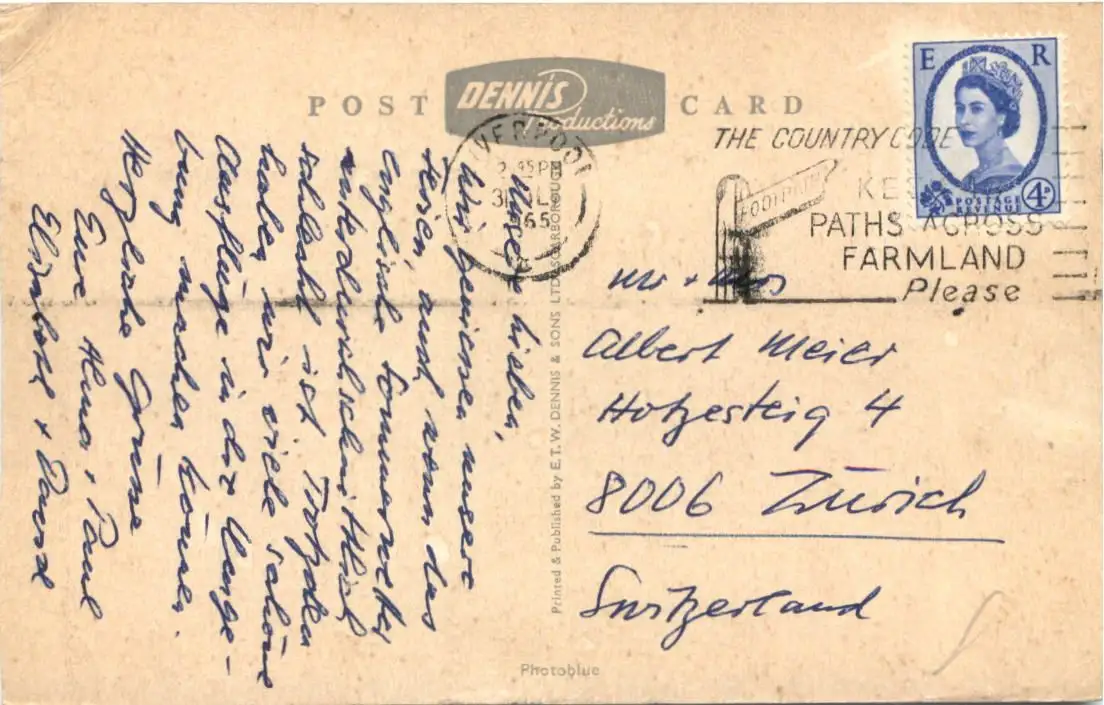 POST CARD
DENNIS
Productions
LIVERPOOL
2 45 PM
1965
THE COUNTRY CODE
FOOTPATH
PATHS ACROSS
FARMLAND
Please
E R
4D
POSTAGE
REVENUE
Meine Lieben,
Wir geniessen unsere
Ferien, auch wenn das
englische Sommerwetter
durchschnittlich
schlecht ist. Trotzdem
haben wir viele schöne
Ausflüge in der Umge-
bung machen können.
Herzliche Grüsse
Eure Hans, Paul
Elisabeth + David
Printed & Published by E.T.W. DENNIS & SONS LTD. SCARBOROUGH
Mr + Mrs
Albert Meier
Hotzesteig 4
8006 Zürich
Switzerland
Photoblue